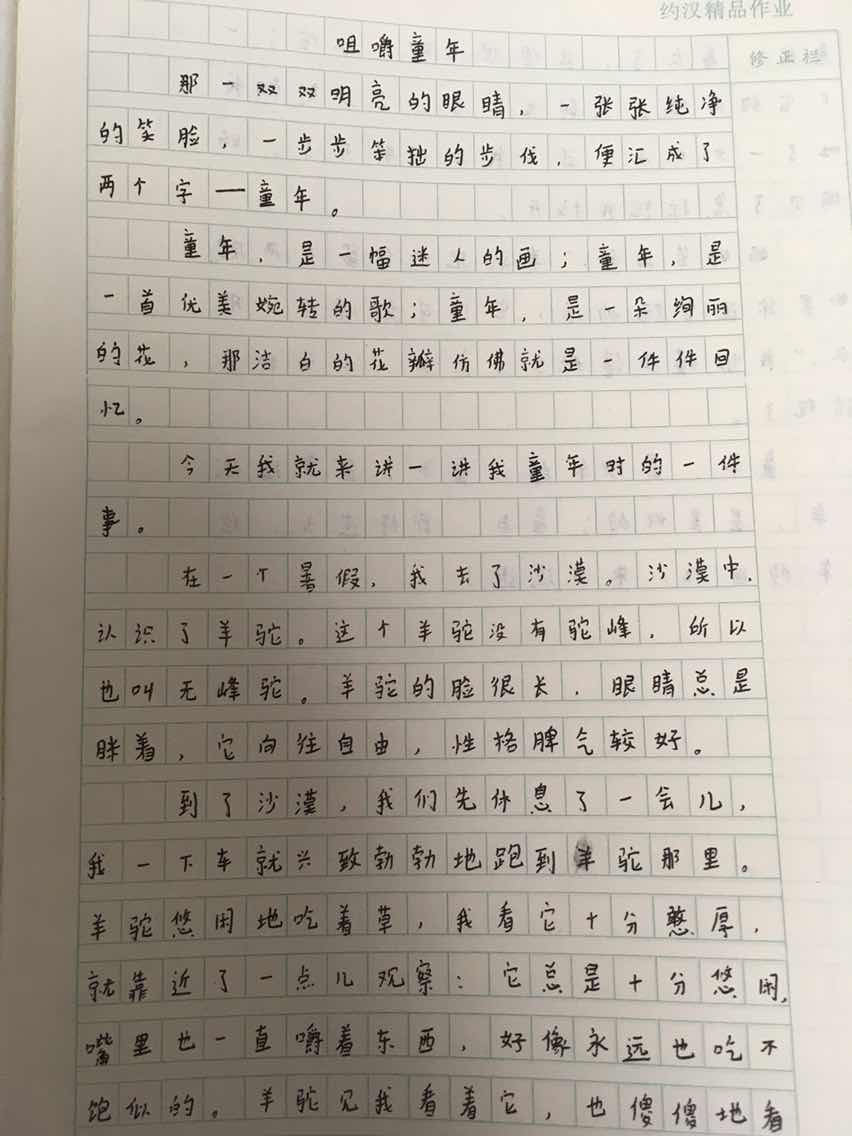 约汉精品作业
修正栏
咀嚼童年
那一双双明亮的眼睛，一张张纯净
的笑脸，一步步笨拙的步伐，便汇成了
两个字——童年。
童年，是一幅迷人的画；童年，是
一首优美婉转的歌；童年，是一朵绚丽
的花，那洁白的花瓣仿佛就是一件件回
忆。
今天我就来讲一讲我童年时的一件
事。
在一个暑假，我去了沙漠。沙漠中，
认识了羊驼。这个羊驼没有驼峰，所以
也叫无峰驼。羊驼的脸很长，眼睛总是
眯着，它向往自由，性格脾气较好。
到了沙漠，我们先休息了一会儿，
我一下车就兴致勃勃地跑到羊驼那里。
羊驼悠闲地吃着草，我看它十分憨厚，
就靠近了一点儿观察：它总是十分悠闲，
嘴里也一直嚼着东西，好像永远也吃不
饱似的。羊驼见我看着它，也傻傻地看